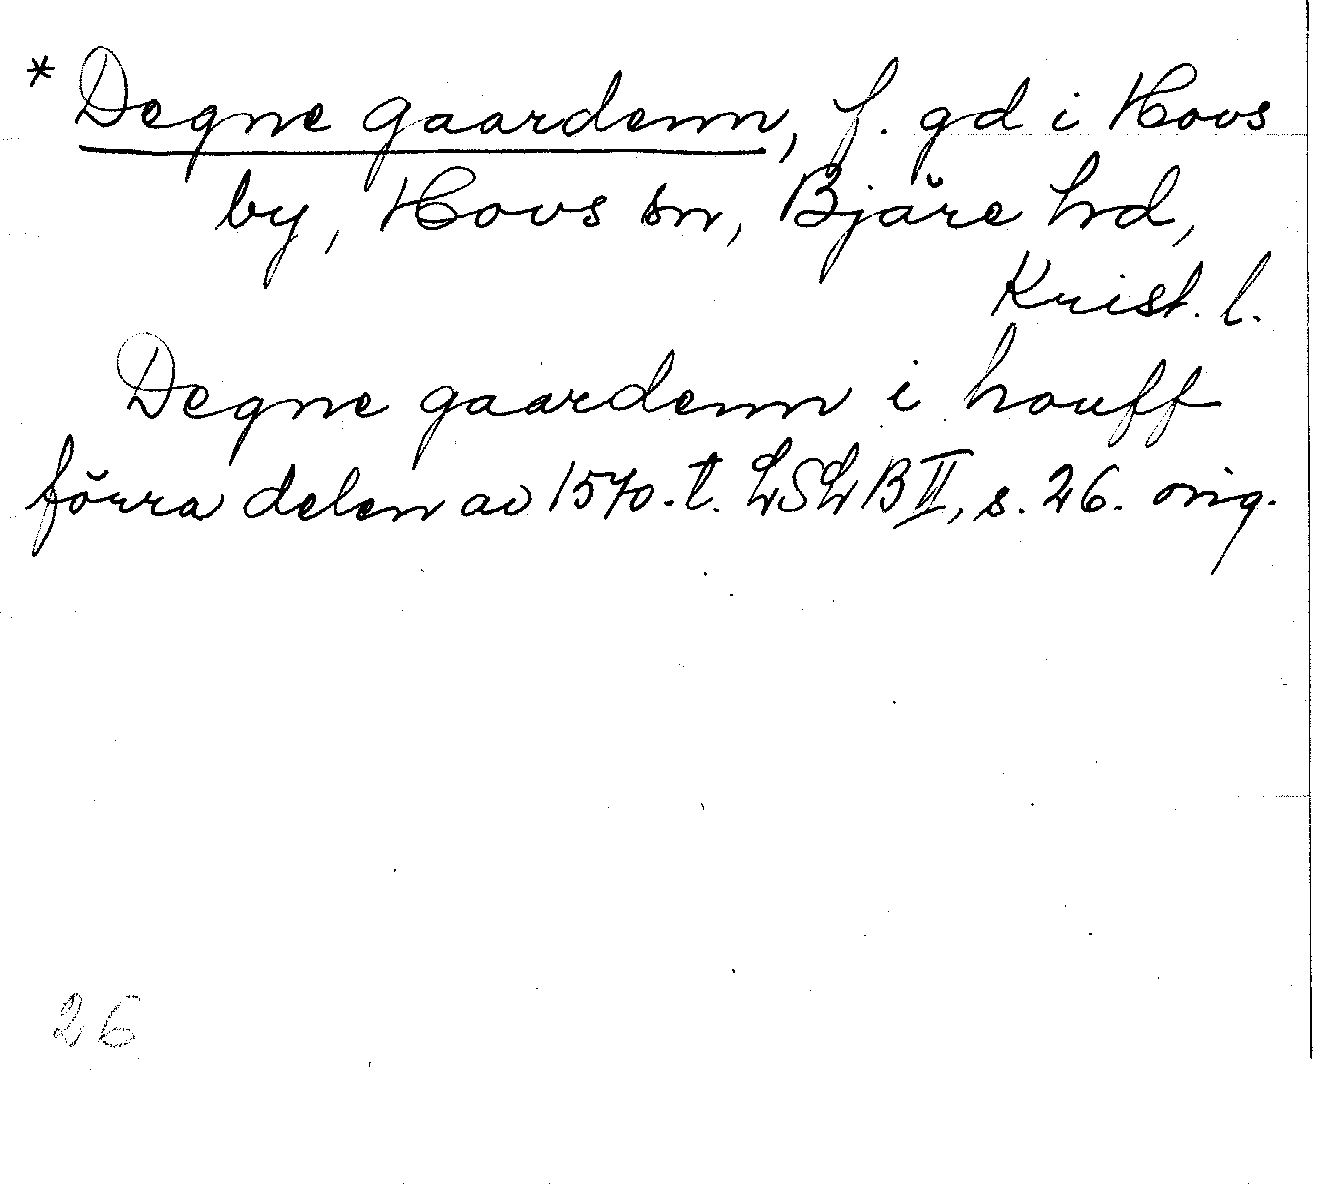 * Degne gaardenn, f. gd i Hovs
by, Hovs sn, Bjäre hd,
Krist. l.
Degne gaardenn i houff
förra delen av 1570-t. LSLB II, s. 26. orig.
26